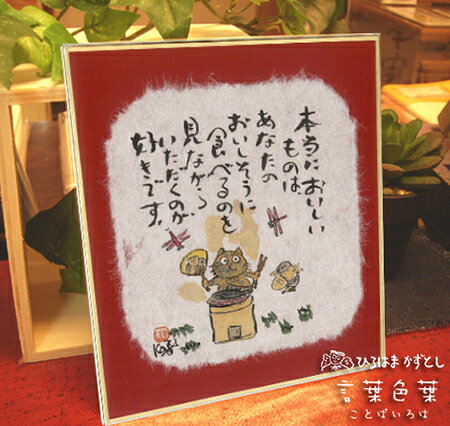 本当においしい
ものは
あなたの
おいしそうに
食べるのを
見ながら
いただくのが
好きです。
ひろはまかずとし
言葉色葉
ことばいろは